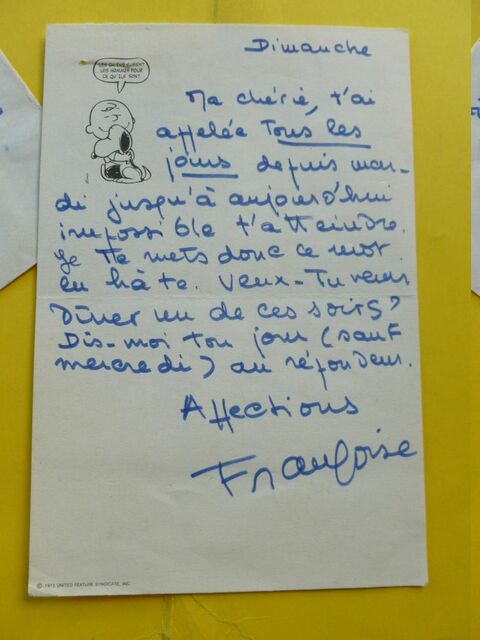 Dimanche
LES CHIENS AIMENT
LES HOMMES POUR
CE QU'ILS SONT
Ma chérie, t'ai
appelée Tous les
jours depuis mar-
di jusqu'à aujourd'hui
impossible t'atteindre.
Je te mets donc ce mot
en hâte. Veux-Tu venir
Dîner un de ces soirs?
Dis-moi ton jour (sauf
mercredi) au répondeur.
Affections
Françoise
© 1973 UNITED FEATURE SYNDICATE, INC.